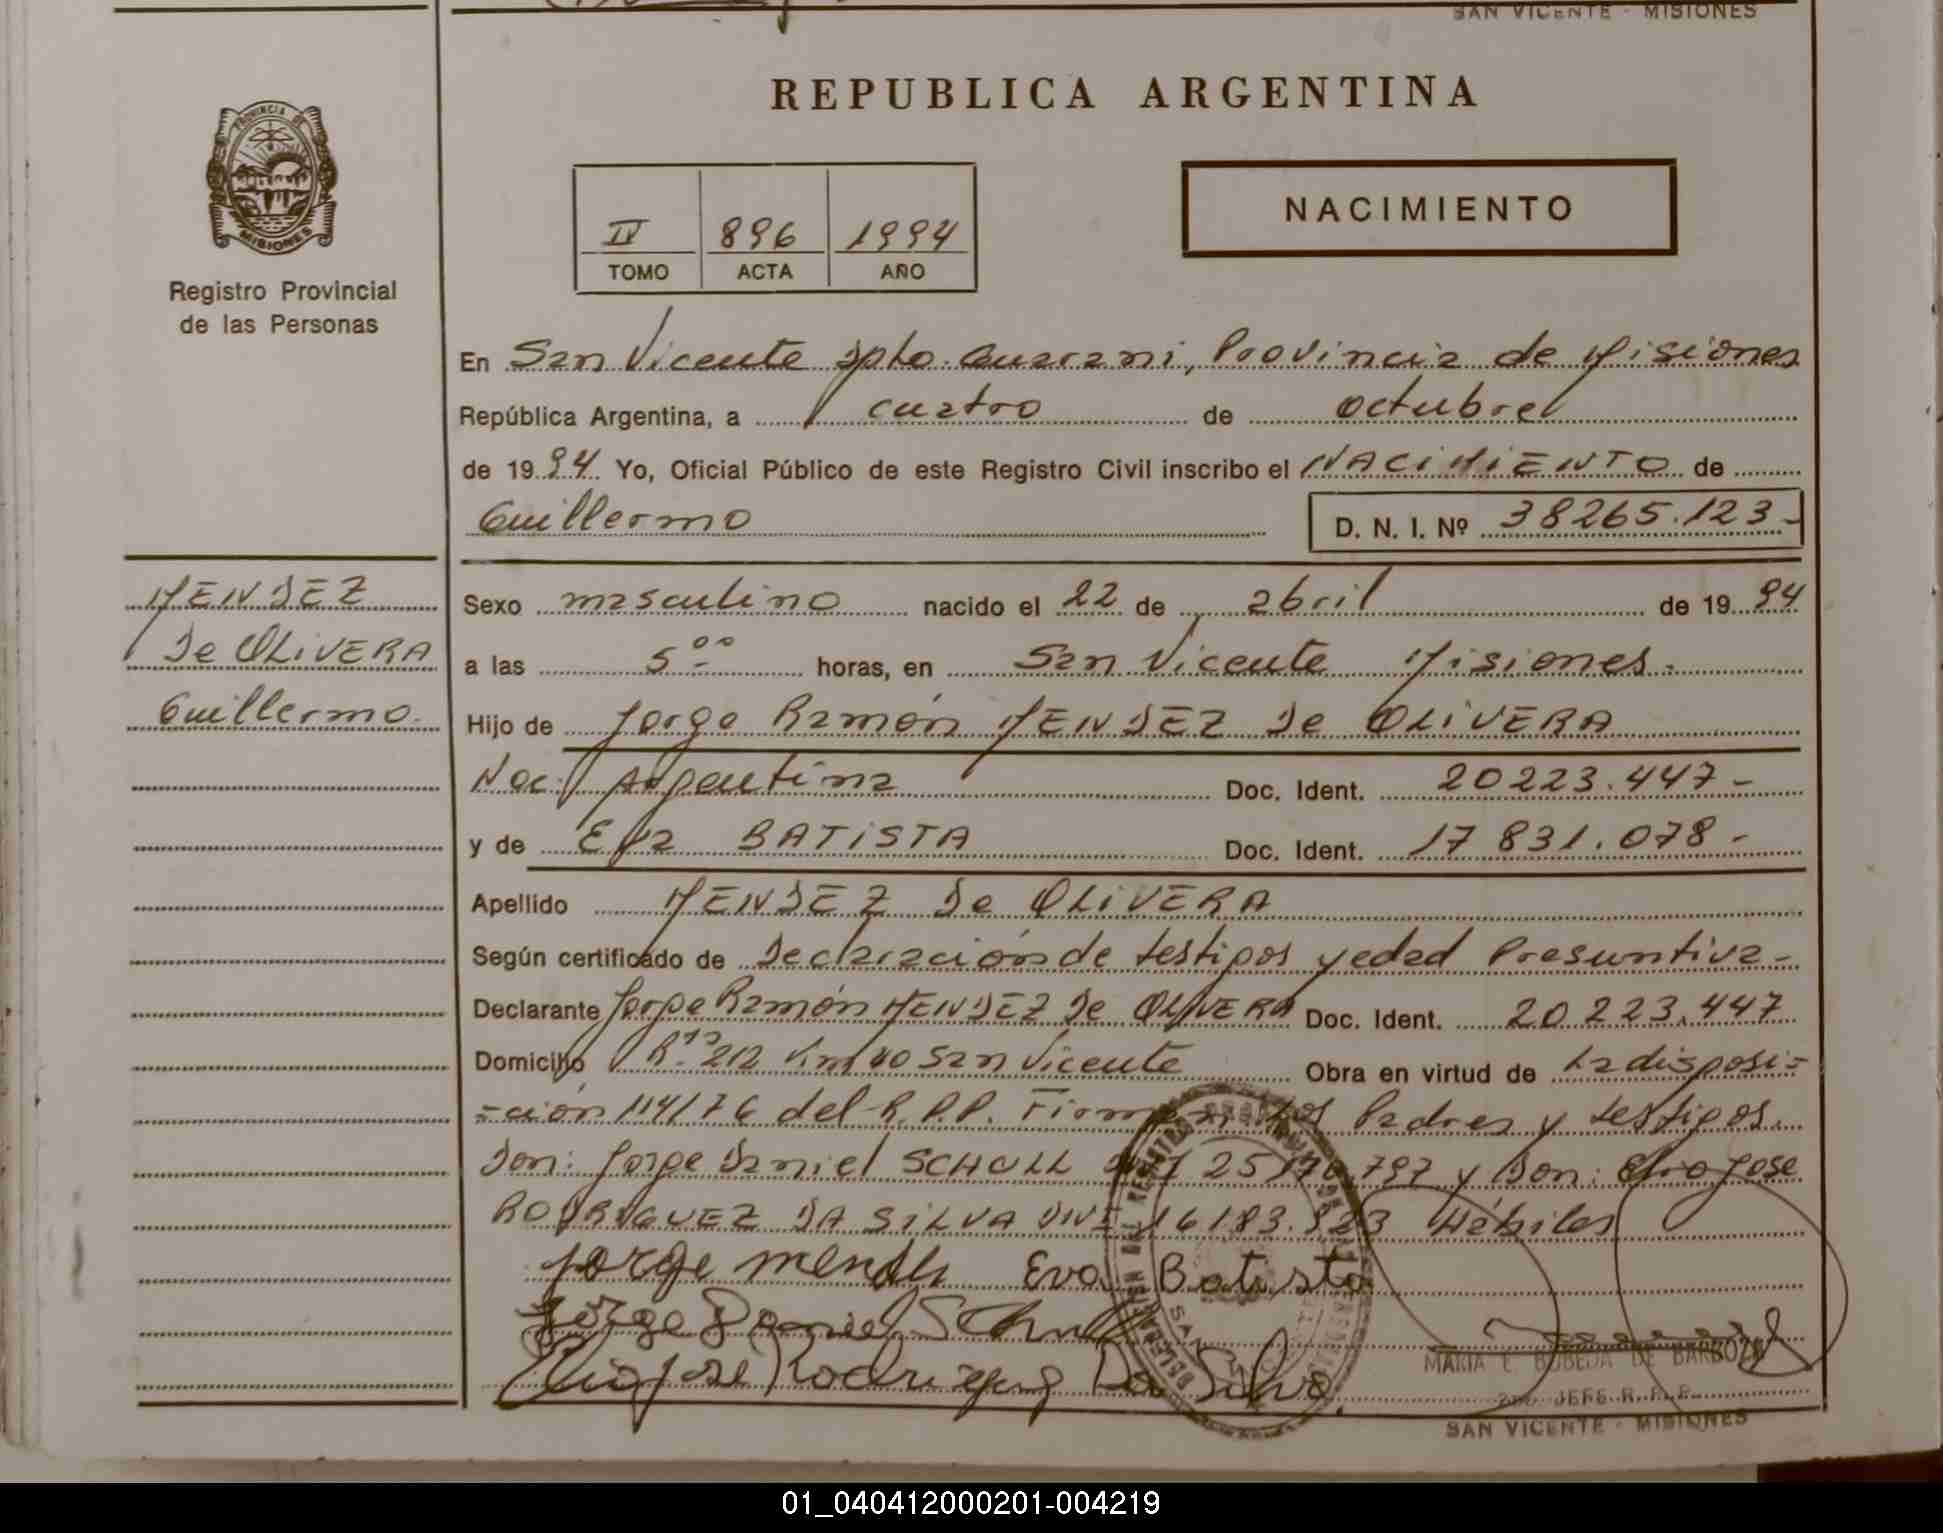 SAN VICENTE - MISIONES
REPUBLICA ARGENTINA
PROVINCIA DE
MISIONES
Registro Provincial
de las Personas
IV 896 1994
TOMO ACTA AÑO
NACIMIENTO
En San Vicente Dpto. Guarani, Provincia de Misiones
República Argentina, a cuatro de octubre
de 1994 Yo, Oficial Público de este Registro Civil inscribo el NACIMIENTO de
Guillermo D. N. I. Nº 38265.123-
MENDEZ
De OLIVERA
Guillermo.
Sexo masculino nacido el 22 de abril de 1994
a las 5 00 horas, en San Vicente Misiones.
Hijo de Jorge Ramón MENDEZ De OLIVERA
Nac. Argentina Doc. Ident. 20223.447-
y de Eva BATISTA Doc. Ident. 17 831.078-
Apellido MENDEZ De OLIVERA
Según certificado de Declaración de testigos y edad Presuntiva-
Declarante Jorge Ramón MENDEZ De OLIVERA Doc. Ident. 20 223.447
Domicilio 212 Km San Vicente Obra en virtud de La disposi=
=ción 114/76 del R.P.P. Firman Los Padres y testigos.
Don: Jorge Daniel SCHOLL DNI 797 y Don: Jose
RODRIGUEZ DA SILVA DNI 16183. Hábiles
Jorge Mendes Eva Batista
Jorge Daniel
Jose Rodriguez Da Silva
MARIA E. BOBEDA DE BARBOZA
JEFE R. P. P.
SAN VICENTE - MISIONES
01_040412000201-004219